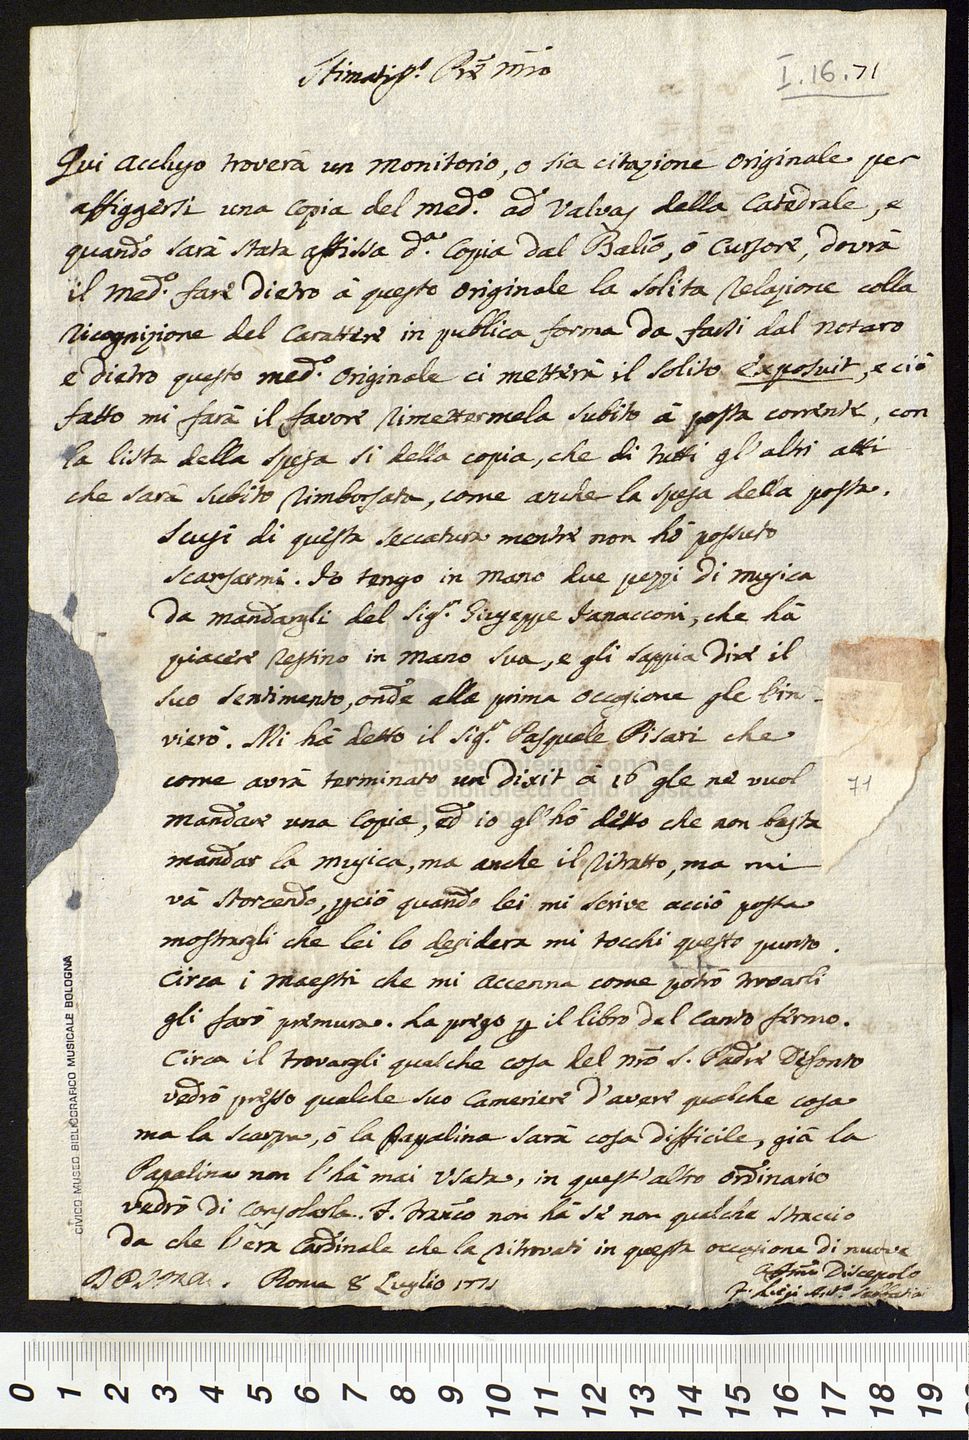 Stimatiss.º Prē mrō
I.16.71
Qui accluso troverà un monitorio, o sia citazione originale per
affiggersi una copia del med.º ad Valvas della Catedrale, e
quando sarà stata affissa d.ª copia dal Balio, ò Cursore, dovrà
il med.º fare dietro à questo originale la solita relazione colla
ricognizione del carattere in publica forma da farsi dal notaro
e dietro questo med.º originale ci metterà il solito exposuit, e ciò
fatto mi farà il favore rimettermela subito à posta corrente, con
la lista della spesa si della copia, che di tutti gl'altri atti
che sarà subito rimborsata, come anche la spesa della posta.
Scusi di questa seccatura mentre non hò possuto
scansarmi. Io tengo in mano due pezzi di musica
da mandargli del Sig.r Giuseppe Janacconi, che hà
piacere restino in mano sua, e gli sappia dire il
suo sentimento, onde alla prima occasione gle l'in-
vierò. Mi hà detto il Sig.r Pasquale Pisari che
come avrà terminato un dixit à 16 gle ne vuol
mandare una copia, ed io gl'hò detto che non basta
mandar la musica, ma anche il ritratto, ma mi
và storcendo, p ciò quando lei mi scrive acciò possa
mostrargli che lei lo desidera mi tocchi questo punto.
Circa i maestri che mi accenna come potrò trovarli
gli farò premura. La prego p il libro del canto fermo.
Circa il trovargli qualche cosa del nrō S. Padre Defonto
vedrò presso qualche suo Cameriere d'avere qualche cosa
ma la scarpa, ò la papalina sarà cosa difficile, già la
Papalina non l'hà mai usata, in quest'altro ordinario
vedrò di consolarla. F. Franco non hà se non qualche straccio
da che l'era Cardinale che la ritrovati in questa occasione di nuovo
Roma 8 Luglio 1775
Affmō Discepolo
F. Luigi Ant.º Sabbatini
71
museo internazionale
e biblioteca della musica
di bologna
CIVICO MUSEO BIBLIOGRAFICO MUSICALE BOLOGNA
0 1 2 3 4 5 6 7 8 9 10 11 12 13 14 15 16 17 18 19